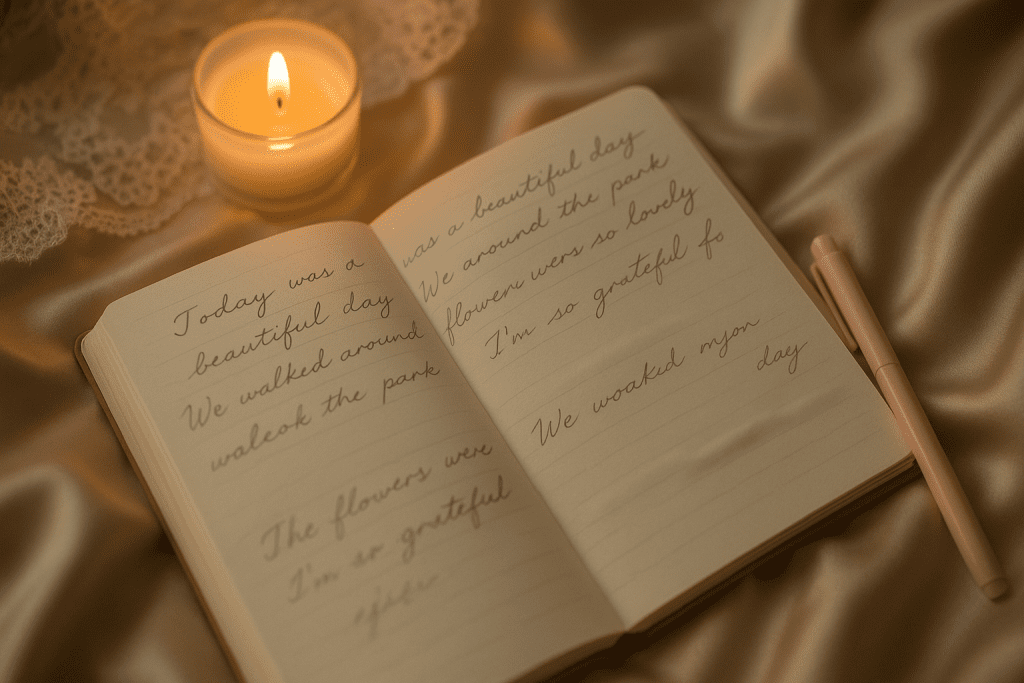 Today was a
beautiful day
We walked around
waleok the park
The flowers were
I'm so grateful
was a beautiful day
We around the park
flowers wers so lovely
I'm so grateful fo
We woakd
day